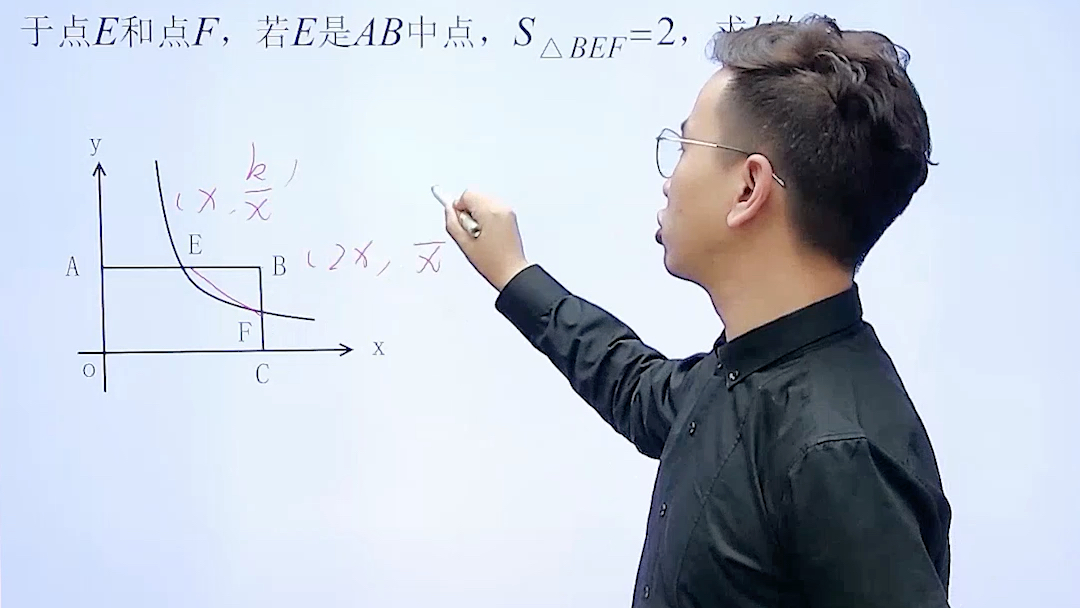 于点E和点F，若E是AB中点，S△BEF=2，求k的
y
(x, k/x)
E
A
B (2x, /x
F
O
C
x